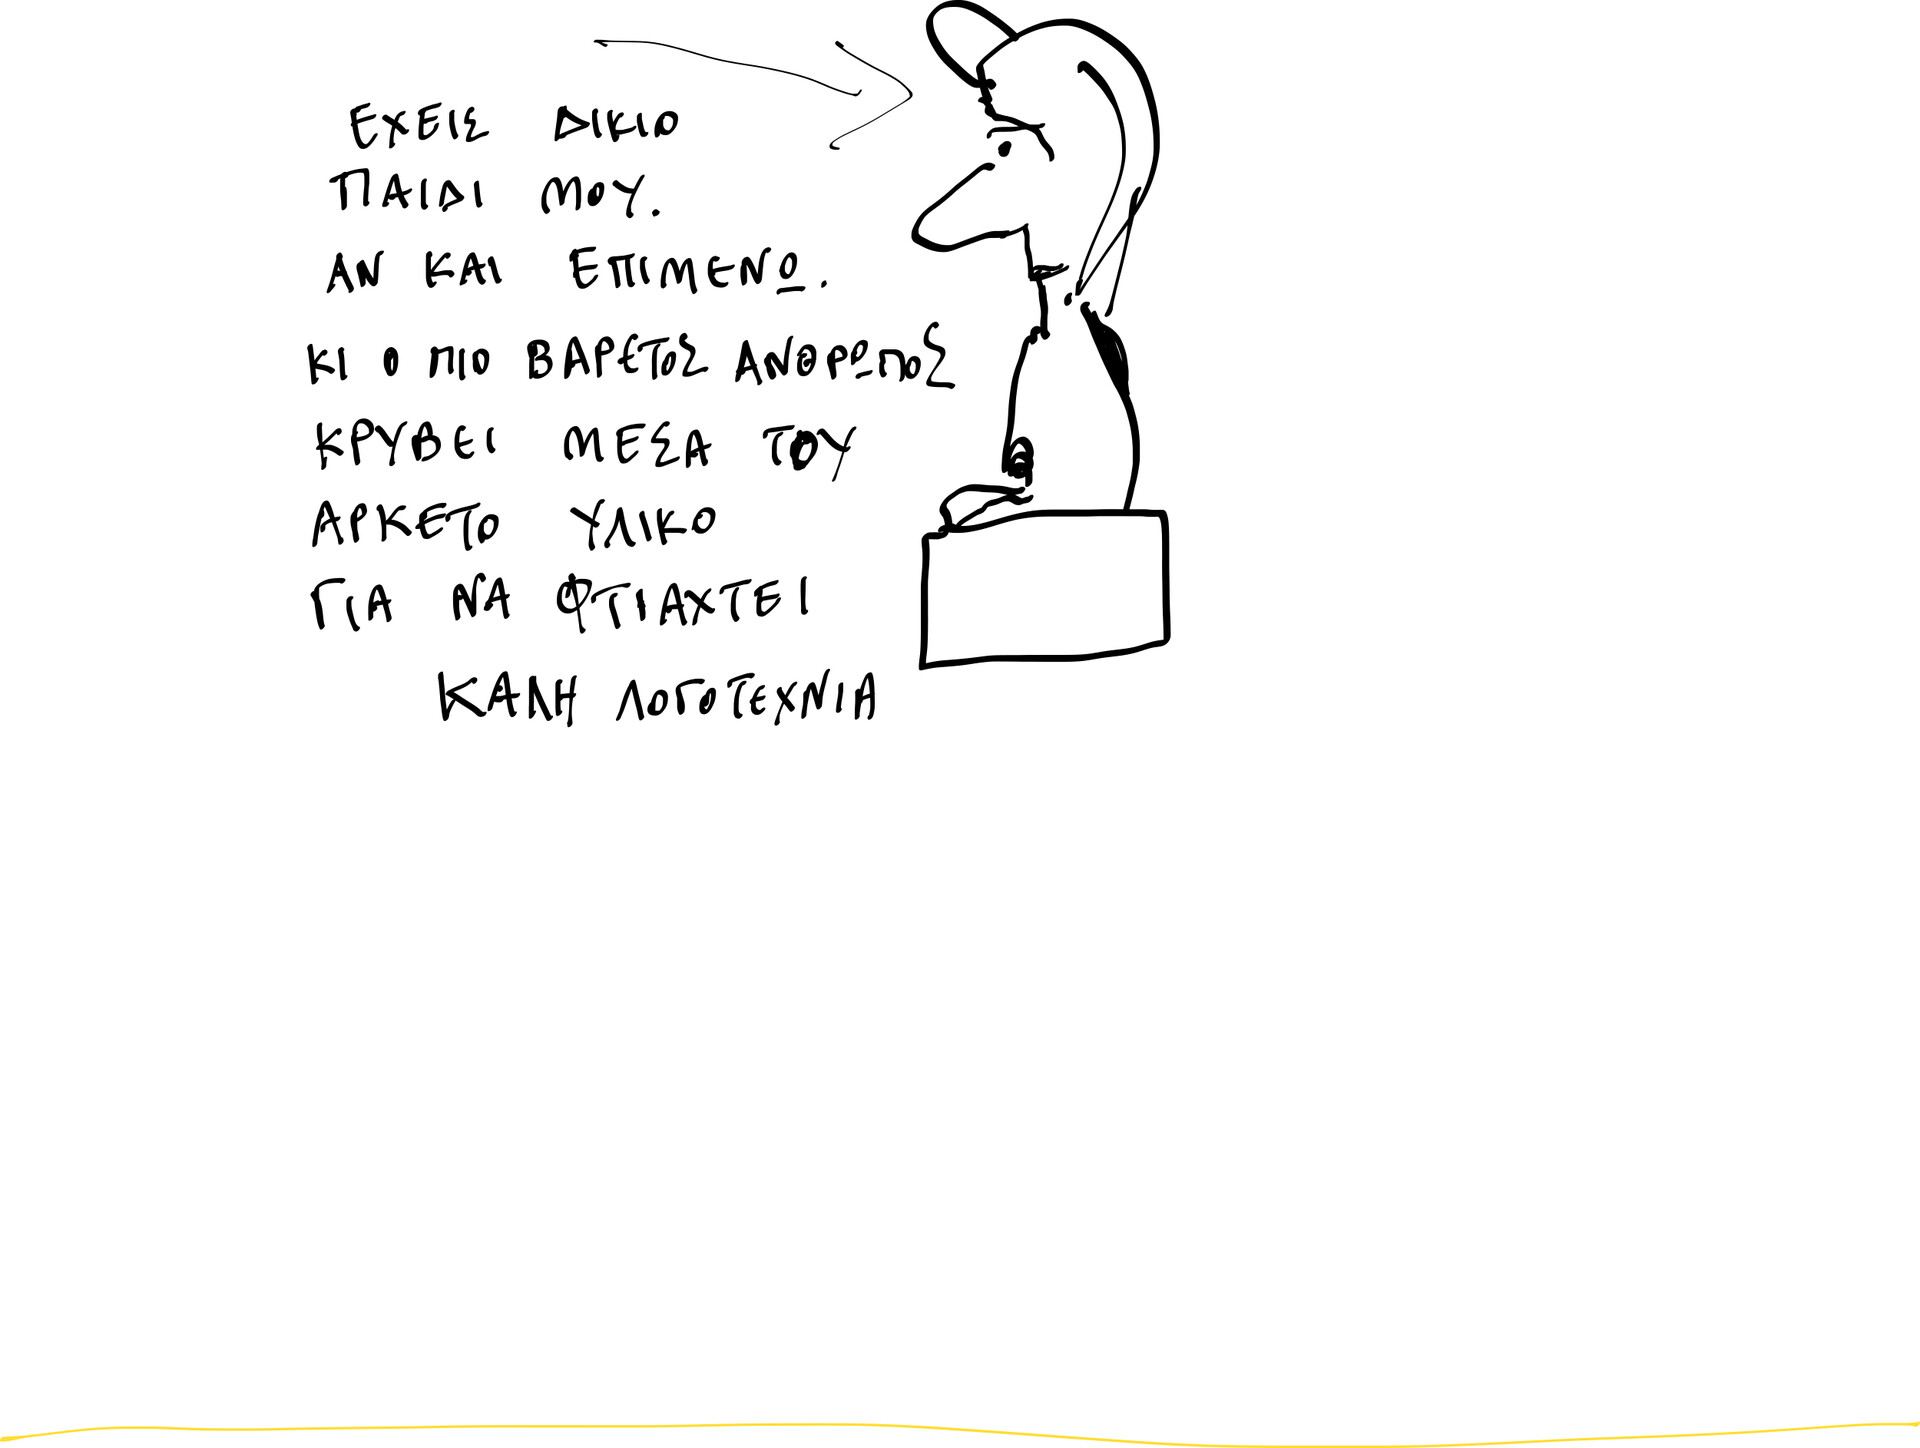 ΕΧΕΙΣ ΔΙΚΙΟ
ΠΑΙΔΙ ΜΟΥ.
ΑΝ ΚΑΙ ΕΠΙΜΕΝΩ.
ΚΙ Ο ΠΙΟ ΒΑΡΕΤΟΣ ΑΝΘΡΩΠΟΣ
ΚΡΥΒΕΙ ΜΕΣΑ ΤΟΥ
ΑΡΚΕΤΟ ΥΛΙΚΟ
ΓΙΑ ΝΑ ΦΤΙΑΧΤΕΙ
ΚΑΛΗ ΛΟΓΟΤΕΧΝΙΑ